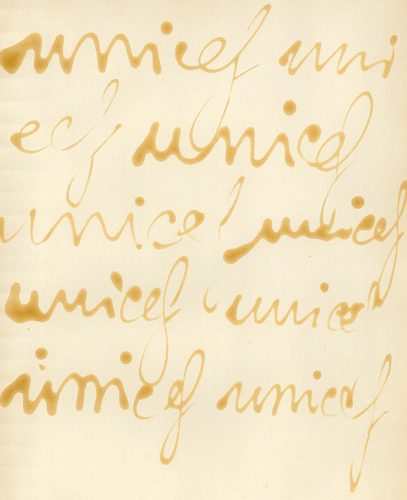 unicef uni
ecf unicef
unicef unicef
unicef unicef
unicef unicef